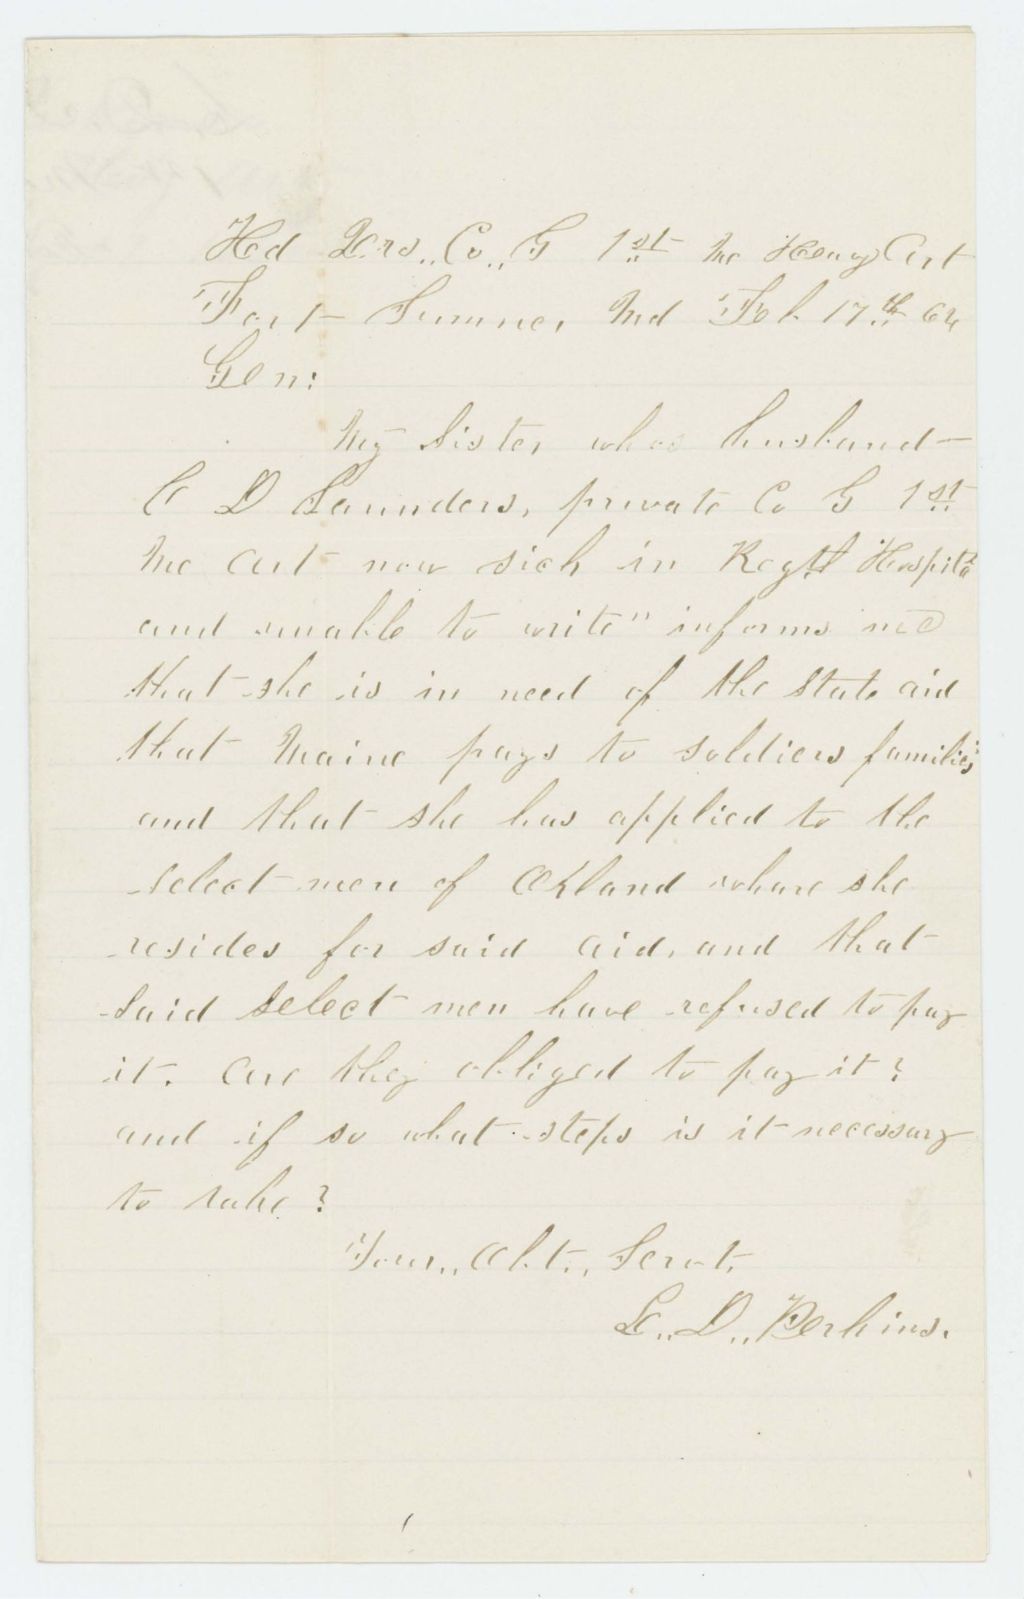 Hd Qrs,, Co,, G 1st Me Heavy Art
Fort Sumner Md Feb. 17th 64
Gen:
My Sister whos husband
C D Saunders, private Co G 1st
Me Art now sick in Regtl Hospital
and unable to write" informs me
that she is in need of the State aid
that Maine pays to soldiers families
and that she has applied to the
select men of Orland whare she
resides for said aid, and that
said select men have refused to pay
it. Are they obliged to pay it?
and if so what steps is it necessary
to take?
Your,, Obt,, Servt.
L,, D,, Perkins.